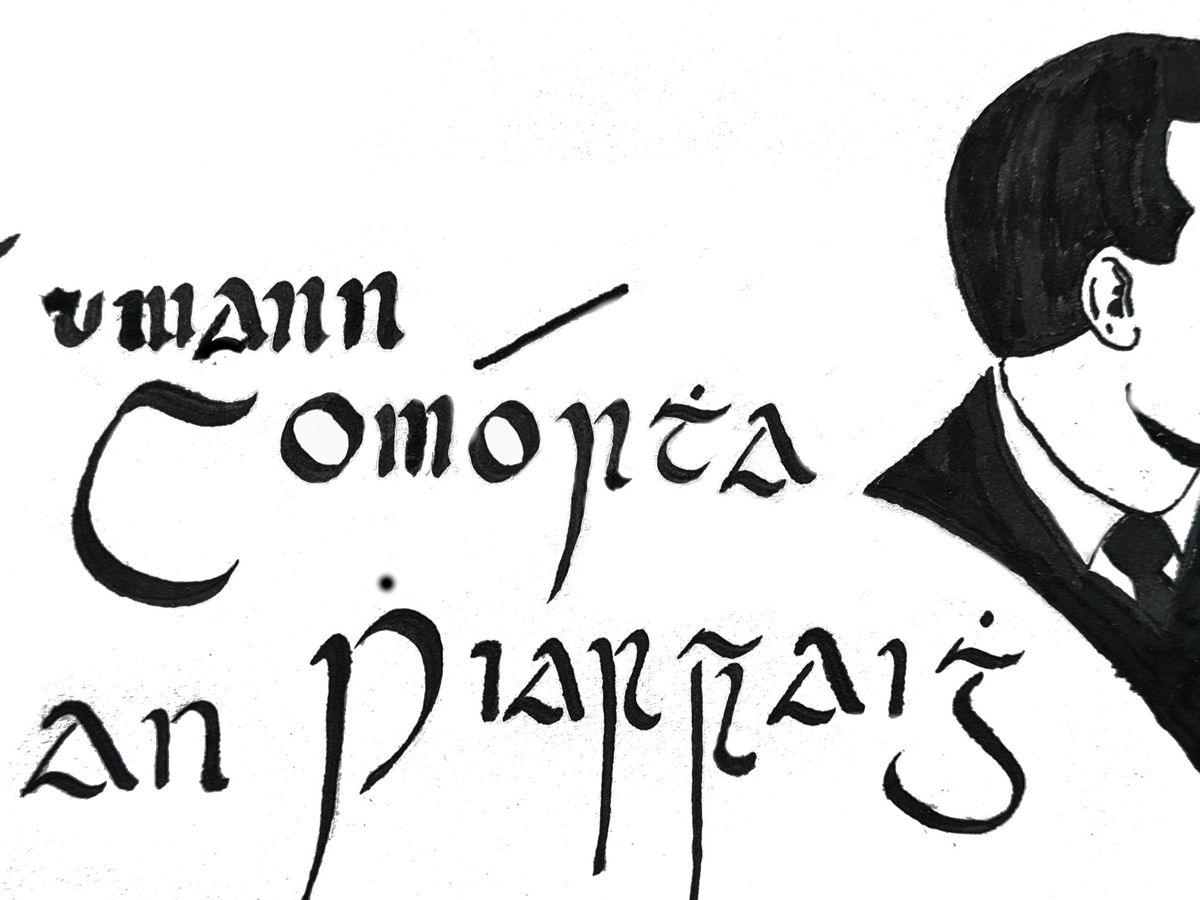 umann
Comórṫa
an Ṗiarsaiġ